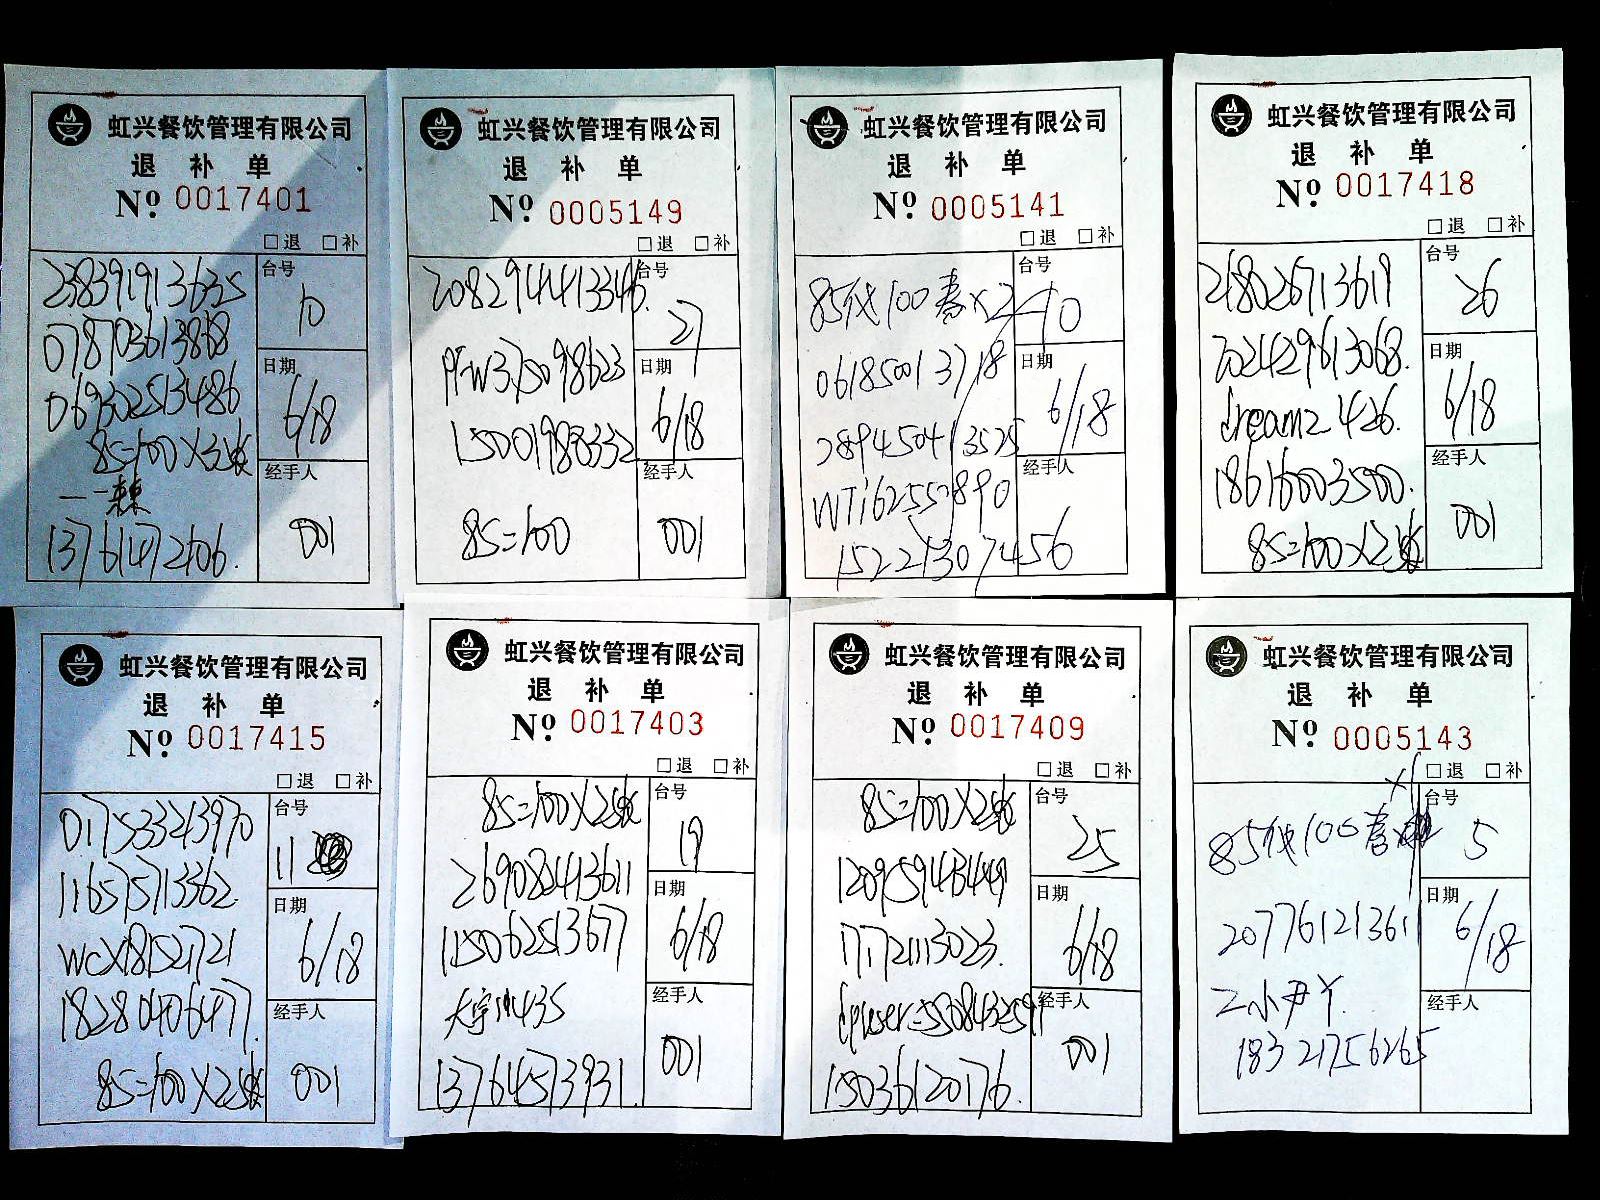 虹兴餐饮管理有限公司
退 补 单
Nº 0017401
□退 □补
238391913635
台号
10
078703613868
069302513486
日期
6/18
85=100×3
经手人
001
13761472606.
虹兴餐饮管理有限公司
退 补 单
Nº 0005149
□退 □补
2082944413346.
台号
27
日期
6/18
15001988332
经手人
001
85=100
虹兴餐饮管理有限公司
退 补 单
Nº 0005141
□退 □补
85代100套×2
台号
10
061850013718
日期
6/18
289450413525
经手人
WTi62550890
15221307456
虹兴餐饮管理有限公司
退 补 单
Nº 0017418
□退 □补
268026713619
台号
26
202429613068.
日期
6/18
dream21426.
经手人
001
18616003500.
85=100×2张
虹兴餐饮管理有限公司
退 补 单
Nº 0017415
□退 □补
017533213970
台号
11
116575713362
日期
6/18
wcx181521721
18280406477.
经手人
001
85=100×2张
虹兴餐饮管理有限公司
退 补 单
Nº 0017403
□退 □补
85=100×2张
台号
19
269082413611
日期
6/18
115062513677
经手人
001
13764573931.
虹兴餐饮管理有限公司
退 补 单
Nº 0017409
□退 □补
85=100×2张
台号
25
120959413449
日期
6/18
171721113023.
经手人
001
15036120176.
虹兴餐饮管理有限公司
退 补 单
Nº 0005143
□退 □补
×1
85代100套
台号
5
207761213611
日期
6/18
经手人
18321756265